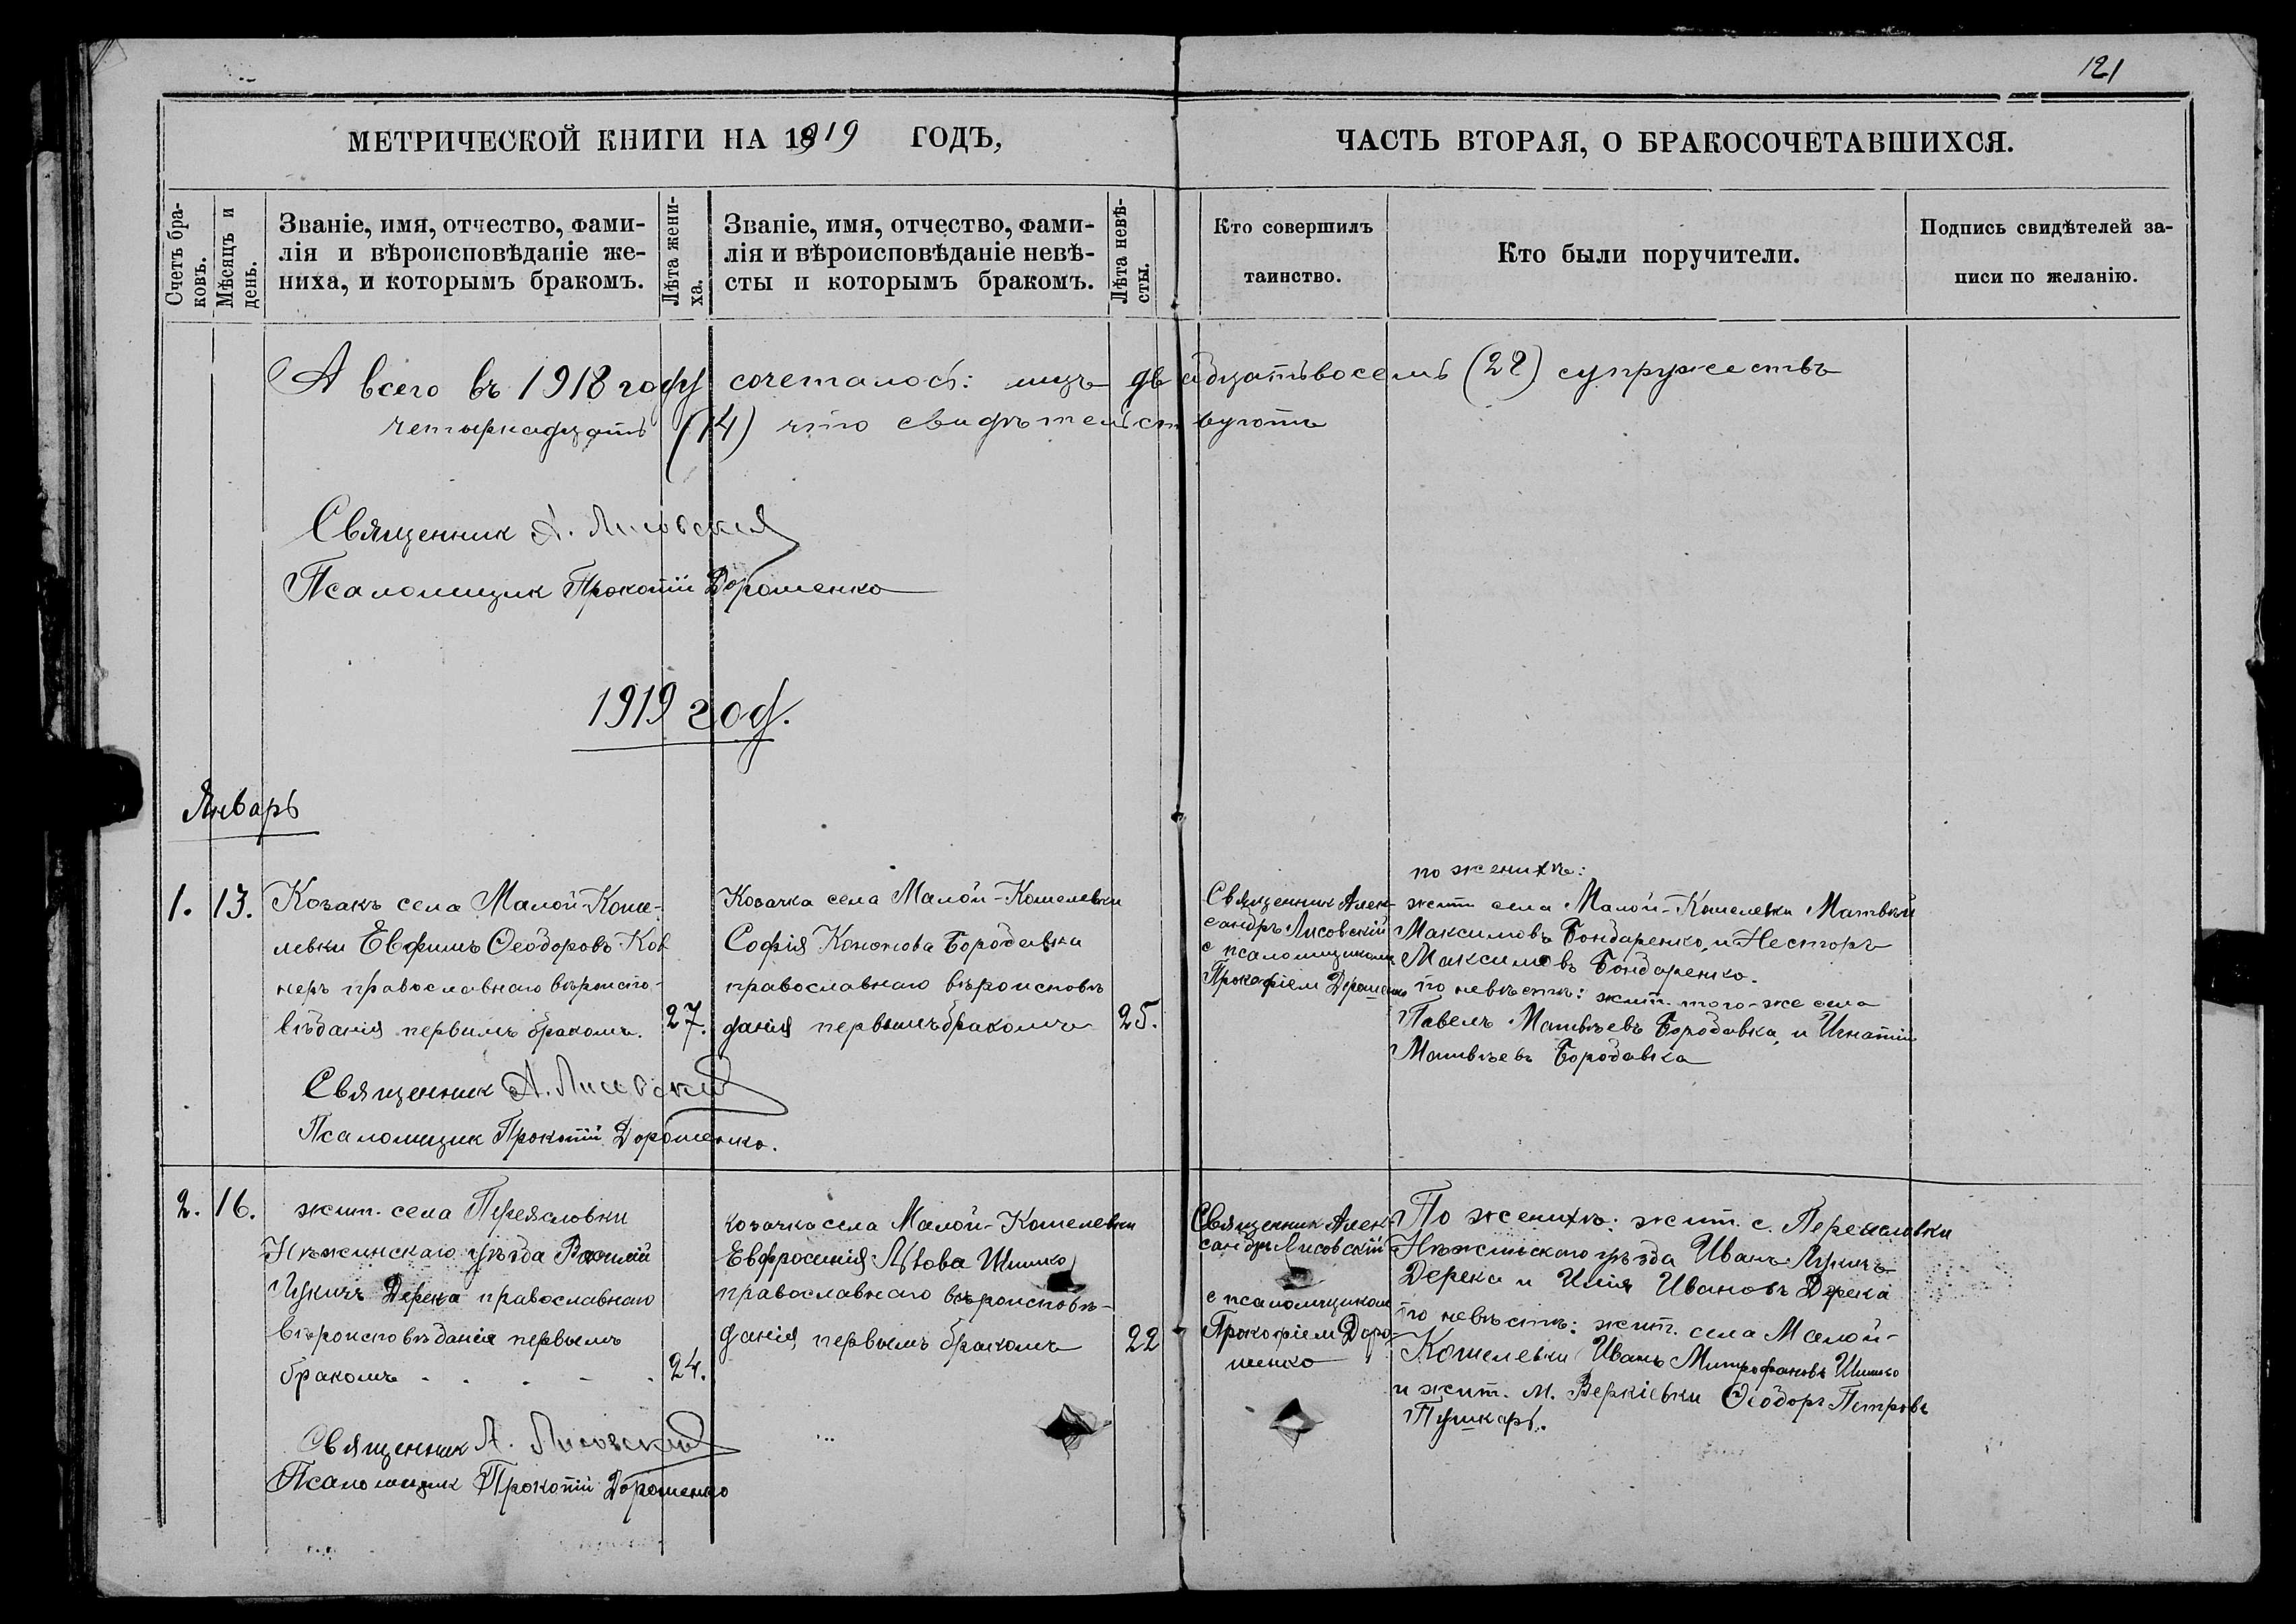 121
МЕТРИЧЕСКОЙ КНИГИ НА 1919 ГОДЪ,
ЧАСТЬ ВТОРАЯ, О БРАКОСОЧЕТАВШИХСЯ.
Счетъ бра-
ковъ.
Мѣсяцъ и
день.
Званіе, имя, отчество, фами-
лія и вѣроисповѣданіе же-
ниха, и которымъ бракомъ.
Лѣта жени-
ха.
Званіе, имя, отчество, фами-
лія и вѣроисповѣданіе невѣ-
сты и которымъ бракомъ.
Лѣта невѣ-
сты.
Кто совершилъ
таинство.
Кто были поручители.
Подпись свидѣтелей за-
писи по желанію.
А всего въ 1918 году сочеталось: лицъ двадцатьвосемь (28) супружествъ
четырнадцать (14) что свидѣтельствуютъ
Священник А. Лисовский
Псаломщик Прокопій Дорошенко
1919 год.
Январь
1. 13.
Козакъ села Малой-Коше-
левки Евфимъ Ѳеодоровъ Ков
неръ православнаго вѣроиспо-
вѣданія первымъ бракомъ.
27.
Козачка села Малой-Кошелевки
Софія Кононова Бородавка
православнаго вѣроисповѣ
данія первымъ бракомъ
25.
Священник Алек-
сандръ Лисовскій
с псаломщиком
Прокофіем Дорошенко
по женихѣ:
жит. села Малой-Кошелевки Матвѣй
Максимовъ Бондаренко, и Несторъ
Максимовъ Бондаренко.
по невѣстѣ: жит. того-же села
Павелъ Матвѣевъ Бородавка, и Игнатій
Матвѣевъ Бородавка
Священник А. Лисовский
Псаломщик Прокопій Дорошенко.
2. 16.
жит. села Переясловки
Нѣжинскаго уѣзда
Дерека православнаго
вѣроисповѣданія первымъ
бракомъ - . . - .
24.
козачка села Малой-Кошелевки
Евфросинія Шишко
православнаго вѣроисповѣ-
данія, первымъ бракомъ
22
Священник Алек-
сандръ Лисовскій
с псаломщиком
Прокофіем Доро-
шенко
По женихѣ: жит. с. Переясловки
Нѣжинскаго уѣзда Иванъ Лукичъ
Дерека и Илія Ивановъ Дерека
по невѣстѣ: жит. села Малой-
Кошелевки Иванъ Митрофановъ Шишко
и жит. м. Веркіевки Ѳеодоръ Петровъ
Пушкарь.
Священник А. Лисовский
Псаломщик Прокопій Дорошенко